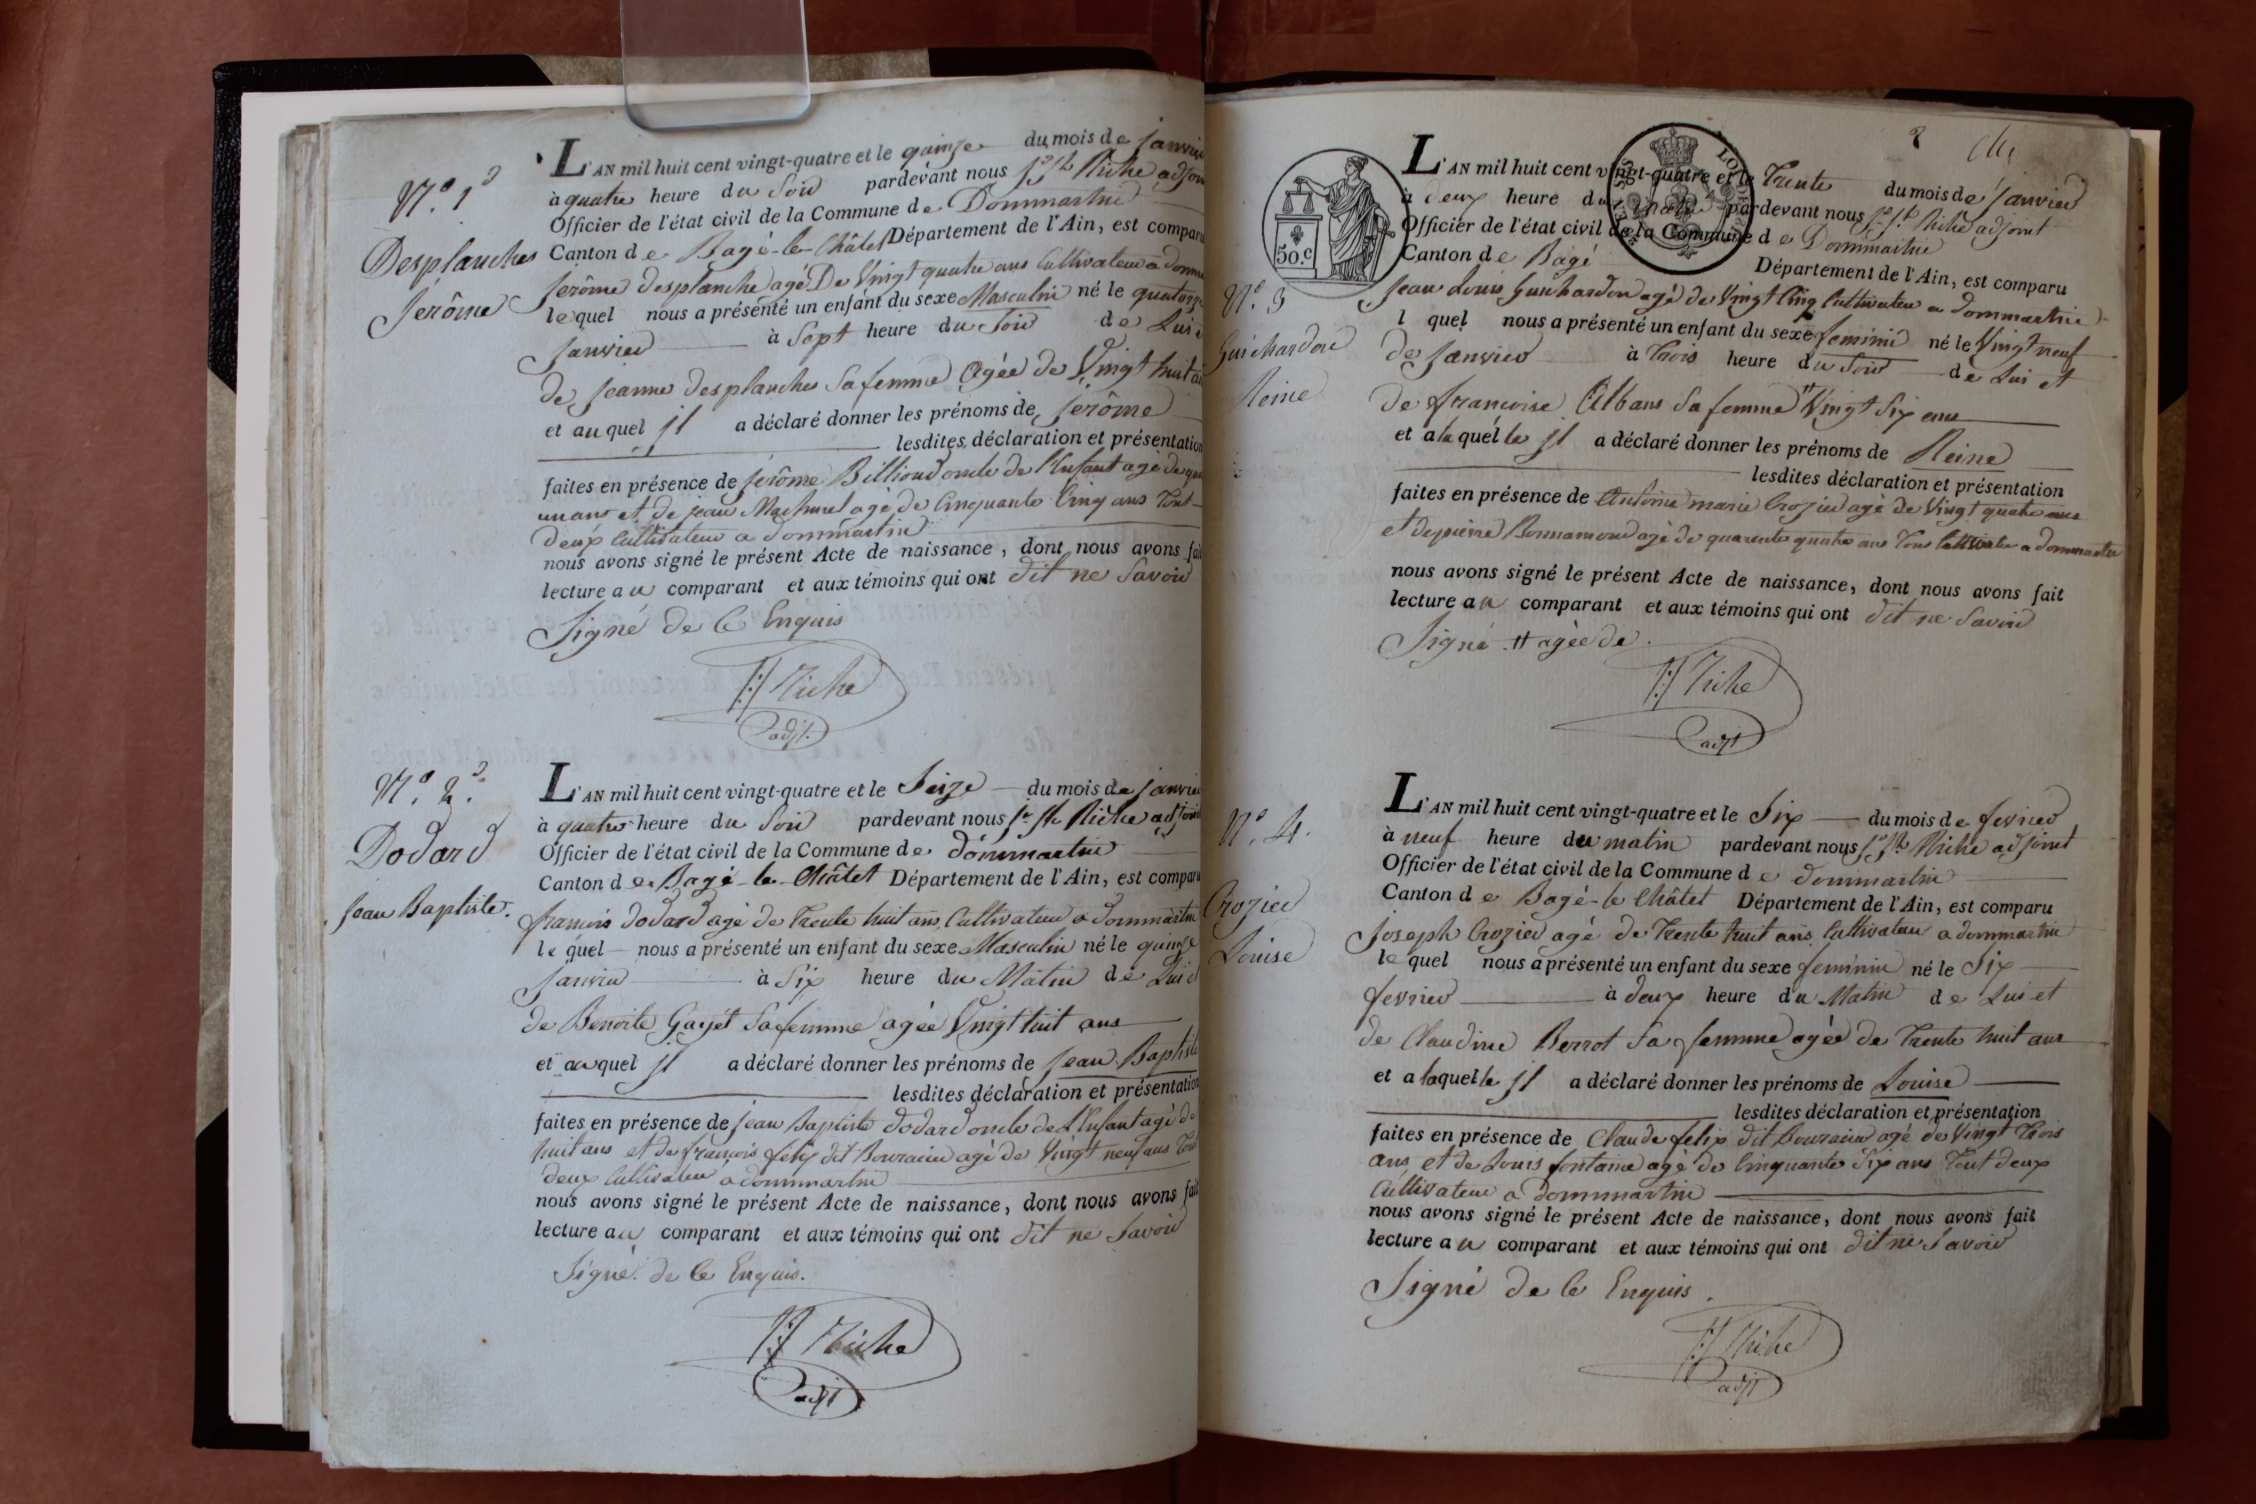 N.º 1.
Desplanches
Jérôme
L'AN mil huit cent vingt-quatre et le quinze du mois de janvier
à quatre heure du Soir pardevant nous Jʰ Riche adjoin
Officier de l'état civil de la Commune de Dommartin
Canton de Bagé-le-Châtel Département de l'Ain, est comparu
Jerôme desplanche agé De Vingt quatre ans Cultivateur a domm
lequel nous a présenté un enfant du sexe Masculin né le quatorze
Janvier à Sept heure du Soir de Lui e
de Jeanne desplanches Sa femme Agée de Vingt huit a
et auquel jl a déclaré donner les prénoms de Jerôme
lesdites déclaration et présentation
faites en présence de Jerôme Billioud oncle de l'Enfant agé de
un ans et de jean Machurel agé de Cinquante Cinq ans Tout
deux Cultivateur a dommartin
nous avons signé le présent Acte de naissance, dont nous avons fai
lecture au comparant et aux témoins qui ont dit ne Savoir
Signé de Ce Enquis
Riche
adjt.
N.º 2.
Dodard
Jean Baptiste.
L'AN mil huit cent vingt-quatre et le Seize du mois de janvier
à quatre heure du Soir pardevant nous Jʰ Riche adjoin
Officier de l'état civil de la Commune de dommartin
Canton de Bagé-le-Châtel Département de l'Ain, est comparu
francois dodard agé de Trente huit ans, Cultivateur a dommartin
lequel nous a présenté un enfant du sexe Masculin né le quinze
Janvier à Six heure du Matin de Lui et
de Benoite Gayet Sa femme agée Vingt huit ans
et auquel jl a déclaré donner les prénoms de Jean Baptiste
lesdites déclaration et présentation
faites en présence de jean Baptiste dodard oncle de L'Enfant agé de
huit ans et de francois felix dit Bourain agé de Vingt neuf ans Tout
deux Cultivateur a dommartin
nous avons signé le présent Acte de naissance, dont nous avons fait
lecture au comparant et aux témoins qui ont dit ne Savoir
Signé de Ce Enquis.
Riche
adjt
2
50.c
N.º 3
Guichardon
Reine
L'AN mil huit cent vingt-quatre et le Trente du mois de janvier
à deux heure du pardevant nous Jʰ Riche adjoint
Officier de l'état civil de la Commune de Dommartin
Canton de Bagé Département de l'Ain, est comparu
Jean Louis Guichardon agé de Vingt Cinq Cultivateur a dommartin
l quel nous a présenté un enfant du sexe feminin né le Vingt neuf
de Janvier à Trois heure du Soir de Lui et
de francoise Albans Sa femme # Vingt Six ans
et a laquelle jl a déclaré donner les prénoms de Reine
lesdites déclaration et présentation
faites en présence de Antoine marie Crozier agé de Vingt quatre ans
et de pierre Bonnamour agé de quarente quatre ans Tous Cultivateur a dommartin
nous avons signé le présent Acte de naissance, dont nous avons fait
lecture au comparant et aux témoins qui ont dit ne Savoir
Signé # agée de.
Riche
adjt
N.º 4.
Crozier
Louise
L'AN mil huit cent vingt-quatre et le Six du mois de fevrier
à neuf heure du matin pardevant nous Jʰ Riche adjoint
Officier de l'état civil de la Commune de dommartin
Canton de Bagé-le Châtel Département de l'Ain, est comparu
Joseph Crozier agé de Trente huit ans Cultivateur a dommartin
lequel nous a présenté un enfant du sexe feminin né le Six
fevrier à deux heure du Matin de Lui et
de Claudine Berrot Sa femme agée de Trente huit ans
et a laquelle jl a déclaré donner les prénoms de Louise
lesdites déclaration et présentation
faites en présence de Claude felix dit Bourain agé de Vingt Trois
ans et de Louis fontaine agé de Cinquante Six ans Tout deux
Cultivateur a dommartin
nous avons signé le présent Acte de naissance, dont nous avons fait
lecture au comparant et aux témoins qui ont dit ne Savoir
Signé de Ce Enquis.
Riche
adjt